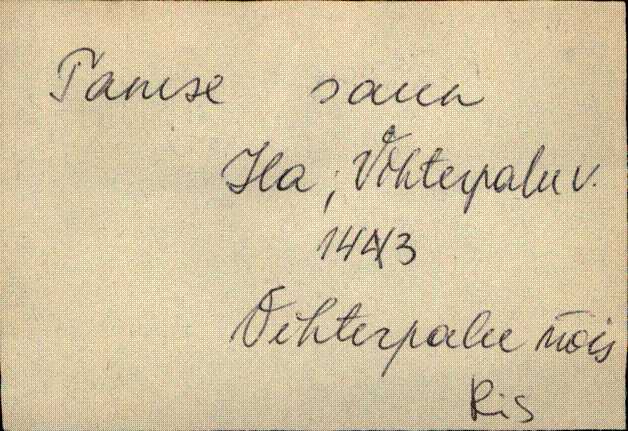 Tamse saun
Ila, Vihterpalu v.
144/3
Vihterpalu mõis
Ris